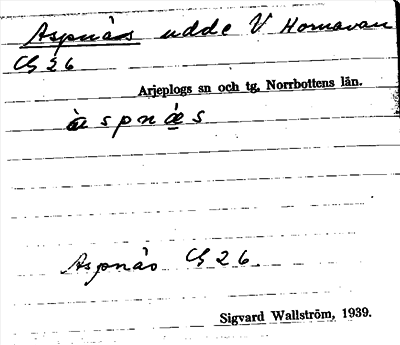 Aspnäs udde V Hornavan
Cg 26
Arjeplogs sn och tg, Norrbottens län.
à s p n ǽ s
Aspnäs Cg 26.
Sigvard Wallström, 1939.